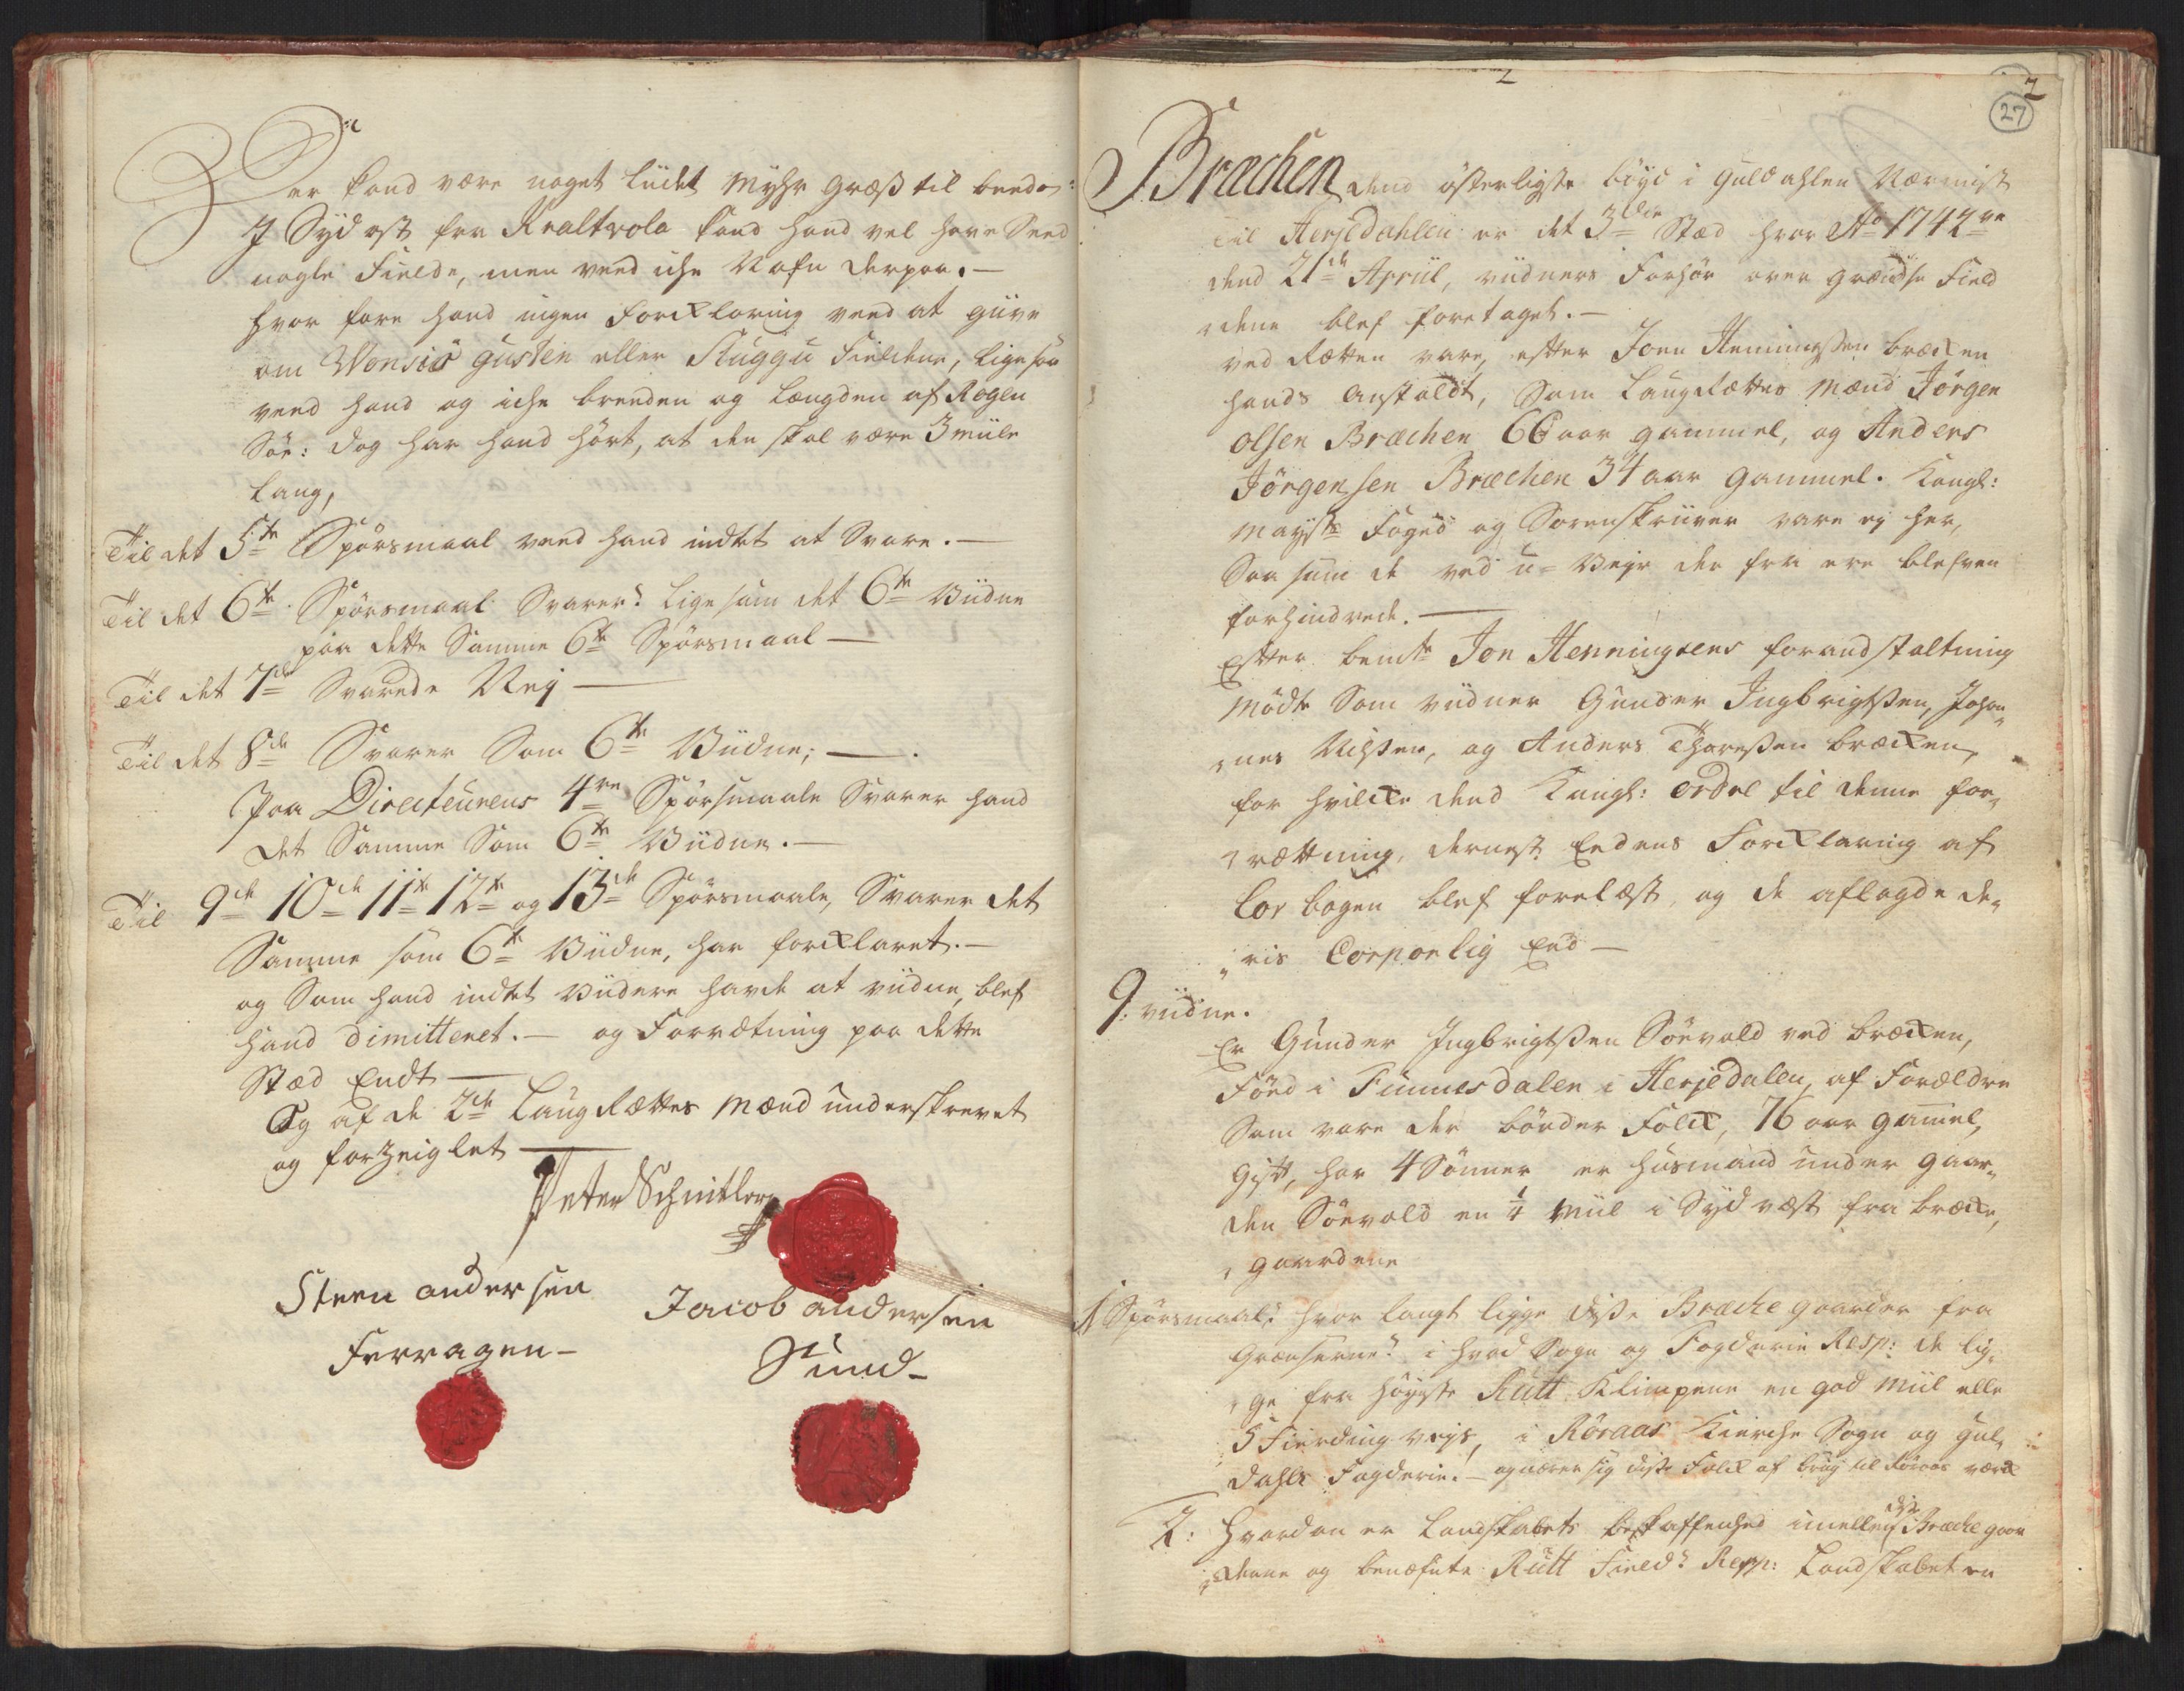 Der kand være noget lüdet Myhr Græs til beede:
I Sydost fra Kraltvola kand hand vel have Seed
nogle Fielde, men veed iche Nafn derpaa.—
hvor fore hand ingen Forklaring veed at giive
om Wonsiö gusten eller Skuggu Fieldene, lige saa
veed hand og iche breeden og Længden af Rogen
Söe: dog har hand hört, at den skal være 3 miile
lang,
Til det 5te Spörsmaal veed hand indtet at Svare.—
Til det 6te Spörsmaal Svarer: lige som det 6te Viidne
paa dette Samme 6te Spörsmaal—
Til det 7de Svarede Nej—
Til det 8de Svarer Som 6te Viidne;—.
Paa Directeurens 4re Spörsmaale Svarer hand
det Samme Som 6te Viidne.—
Til 9de 10de 11te 12te og 13de Spörsmaale, Svarer det
Samme som 6te Viidne, har forklaret.—
og Som hand indtet viidere havde at viidne, blef
hand dimitteret.— og Forrætning paa dette
Stæd Endt—
Og af de 2de LaugRættes Mænd underskrevet
og forzeiglet—
Peter Schnitler
Steen andersen
Ferragen-
Jacob andersen
Sund-
2
27
Bræchen dend österligste böyd i Guldahlen Nærmist
til Herjedahlen er det 3die Stæd hvor Ao 1742ve
dend 21de April, viidners Forhör over grændse Field
dene blef foretaget.—
ved Rætten vare, efter Joen Henningsen bræcken
hands Anstaldt, Som LaugRættes Mænd Jörgen
Olsen Bræchen 66 aar gammel, og Anders
Jörgensen Bræchen 34 aar gammel. Kongl:
Mayts Foged og Sorenskriiver vare ej her,
Saa som de ved u-Vejr der fra ere blefven
forhindrede.—
Efter bemte Jon Henningsens forandstaltning
Mödte Som viidner Gunder Ingbrigtsen, Johan„
„nes Nilssen, og Anders Thoressen bræcken,
for hvilcke dend Kongl: ordre til denne for„
„rættning, dernest Eedens Forcklaring af
Lov bogen blef forelæst, og de aflagde de„
„ris Corporlig Eed—
9. viidne.
Er Gunder Ingbrigtsen Söevold ved bræcken,
Föed i Funnesdalen i Herjedalen, af Forældre
Som vare der bönder Folck, 76 aar gamel,
Gift, har 4 Sönner er husmand under gaar„
den Söevold en 1/4 Miil i Sydvæst fra bræcke„
„gaardene
1 Spörsmaal: hvor langt ligge disse Bræche gaarder fra
Grænserne? i hvad Sogn og Fogderie Resp: de lig„
„ge fra höyeste Rutt Klimpene en god Miil elle
5 Fierding Vejs, i Röraas Kierche Sogn og gul„
dahls Fogderie.— og nærer sig disse Folck af brug til Röraas værck
2: Hvordan er Landskabets beskaffenhed imellem disse Bræche gaar
„dene og benæfnte Rutt Field? Resp: Landskabet er